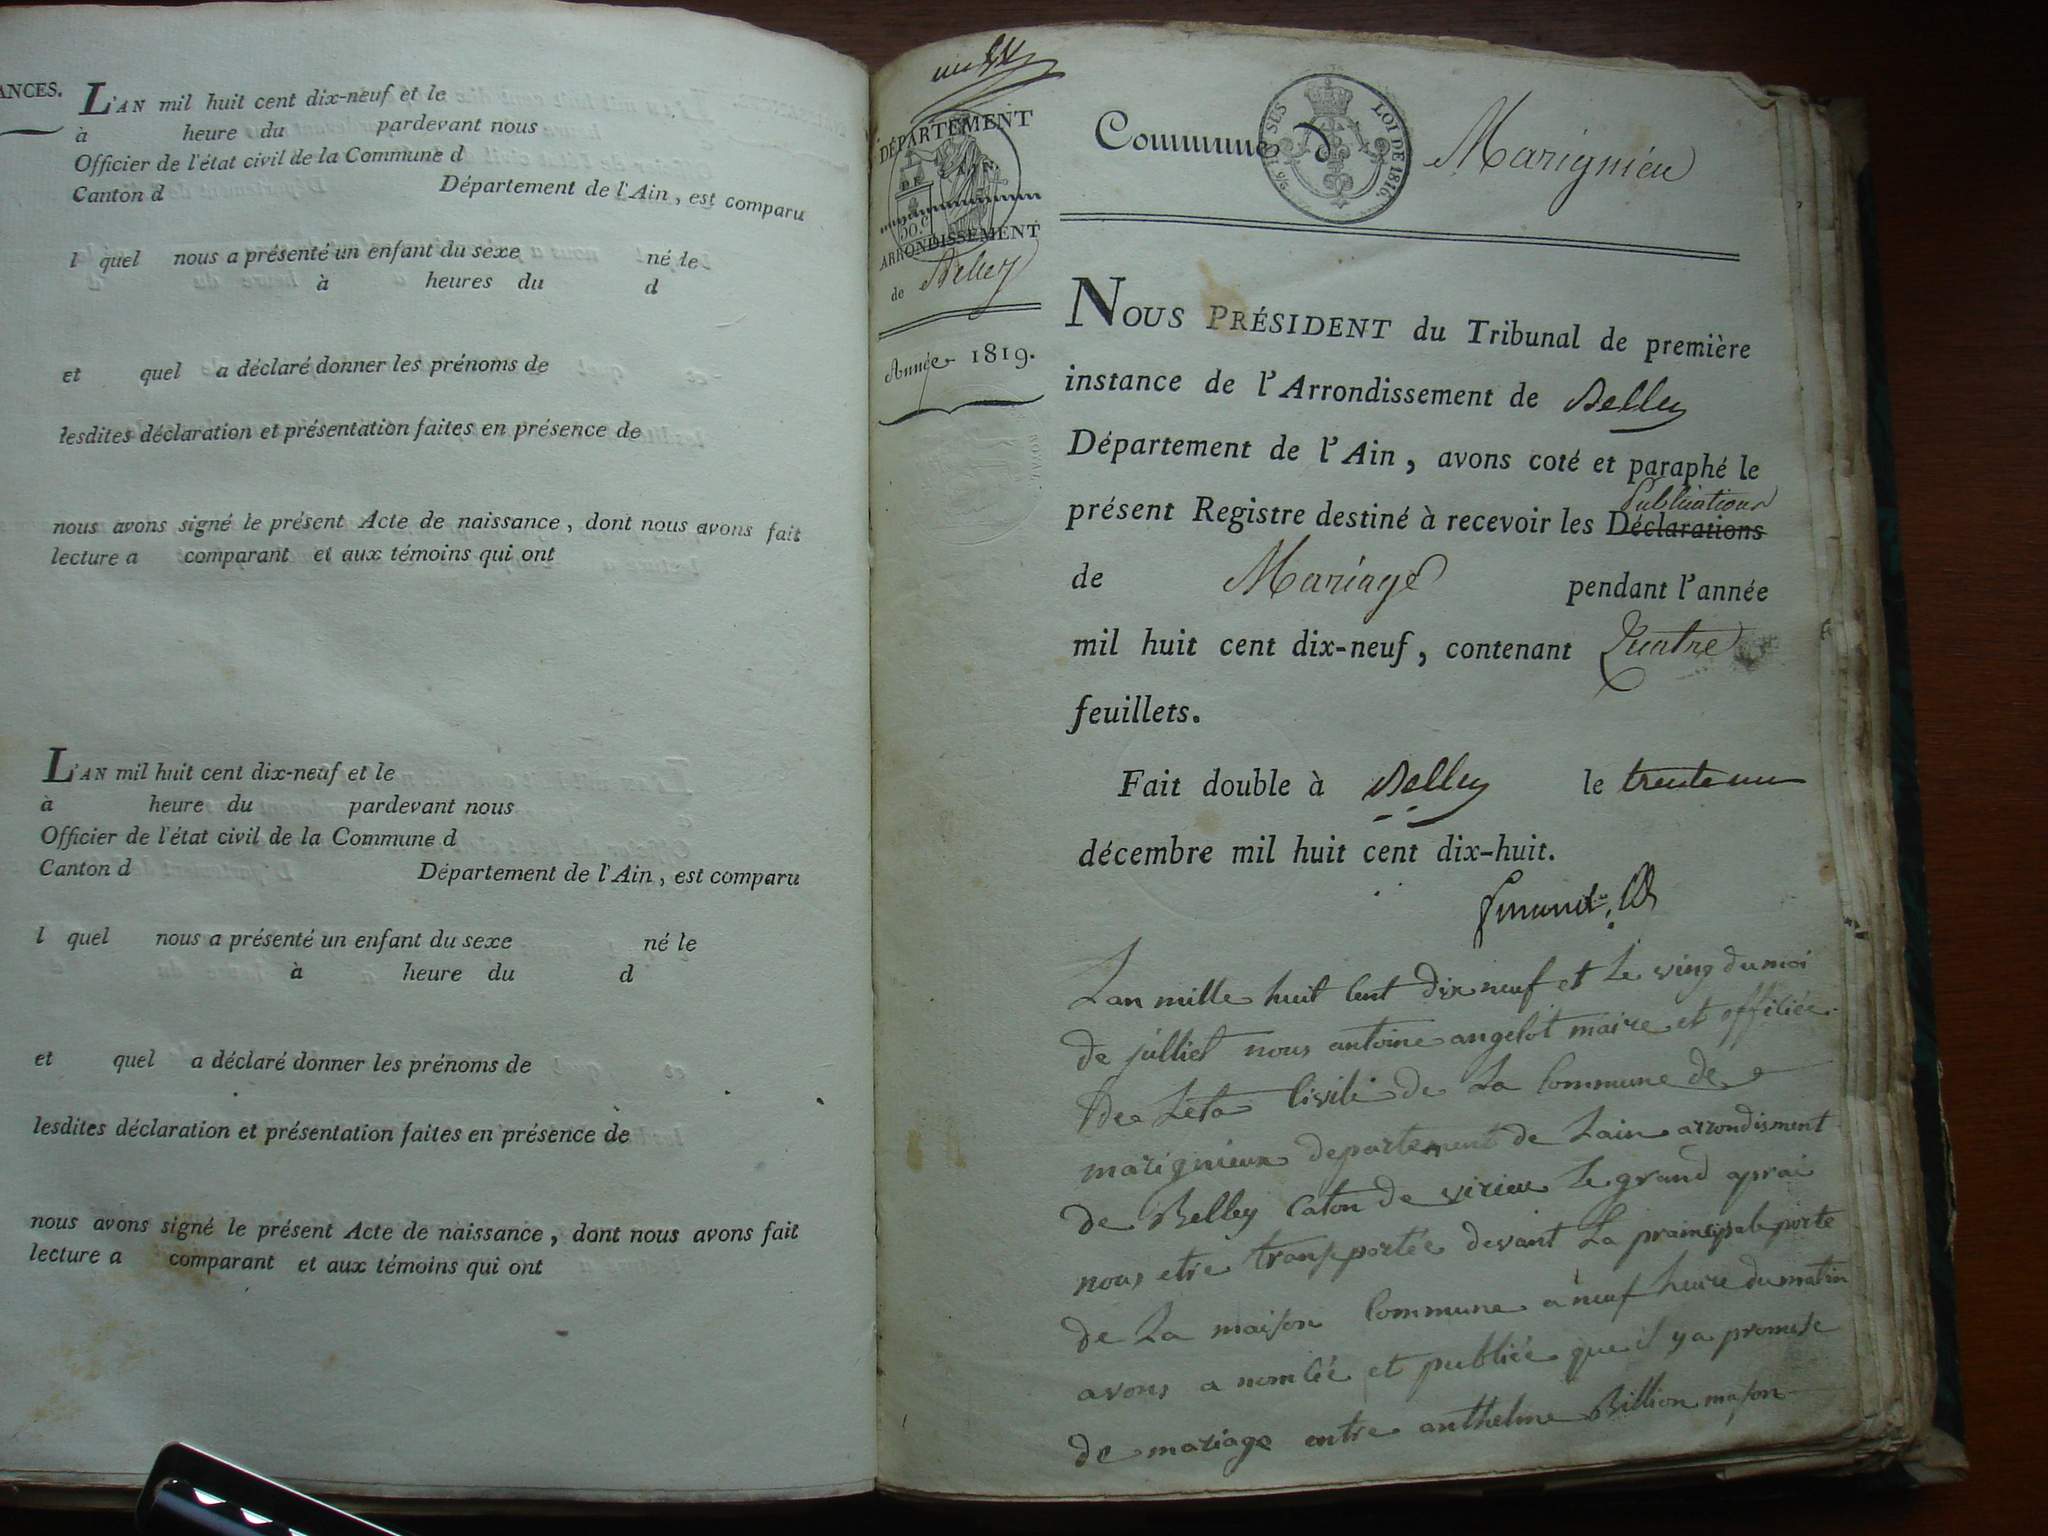 ANCES.
L'AN mil huit cent dix-neuf et le
à heure du pardevant nous
Officier de l'état civil de la Commune d
Canton d Département de l'Ain, est comparu
l quel nous a présenté un enfant du sexe né le
à heures du d
et quel a déclaré donner les prénoms de
lesdites déclaration et présentation faites en présence de
nous avons signé le présent Acte de naissance, dont nous avons fait
lecture a comparant et aux témoins qui ont
L'AN mil huit cent dix-neuf et le
à heure du pardevant nous
Officier de l'état civil de la Commune d
Canton d Département de l'Ain, est comparu
l quel nous a présenté un enfant du sexe né le
à heure du d
et quel a déclaré donner les prénoms de
lesdites déclaration et présentation faites en présence de
nous avons signé le présent Acte de naissance, dont nous avons fait
lecture a comparant et aux témoins qui ont
DÉPARTEMENT
DE L'AIN.
50.C
ARRONDISSEMENT
de Belley
Année 1819.
Commune d Marignieu
SES LOI DE 1816.
NOUS PRÉSIDENT du Tribunal de première
instance de l'Arrondissement de Belley
Département de l'Ain, avons coté et paraphé le
présent Registre destiné à recevoir les Déclarations Publications
de Mariage pendant l'année
mil huit cent dix-neuf, contenant Quatre
feuillets.
Fait double à Belley le trente un
décembre mil huit cent dix-huit.
Lan mille huit cent dix neuf et le ving du moi
de julliet nous antoine angelot maire et officiée
De Leta Civile de La Commune de
marignieux departement de Lain arrondisment
de Belley Caton de virieu Le grand aprai
nous etre transportée devant La prainsipale porte
de La maison Commune a neuf heure du matin
avons a nomcée et publiée que il y a promese
de mariage entre anthelme Billion mason